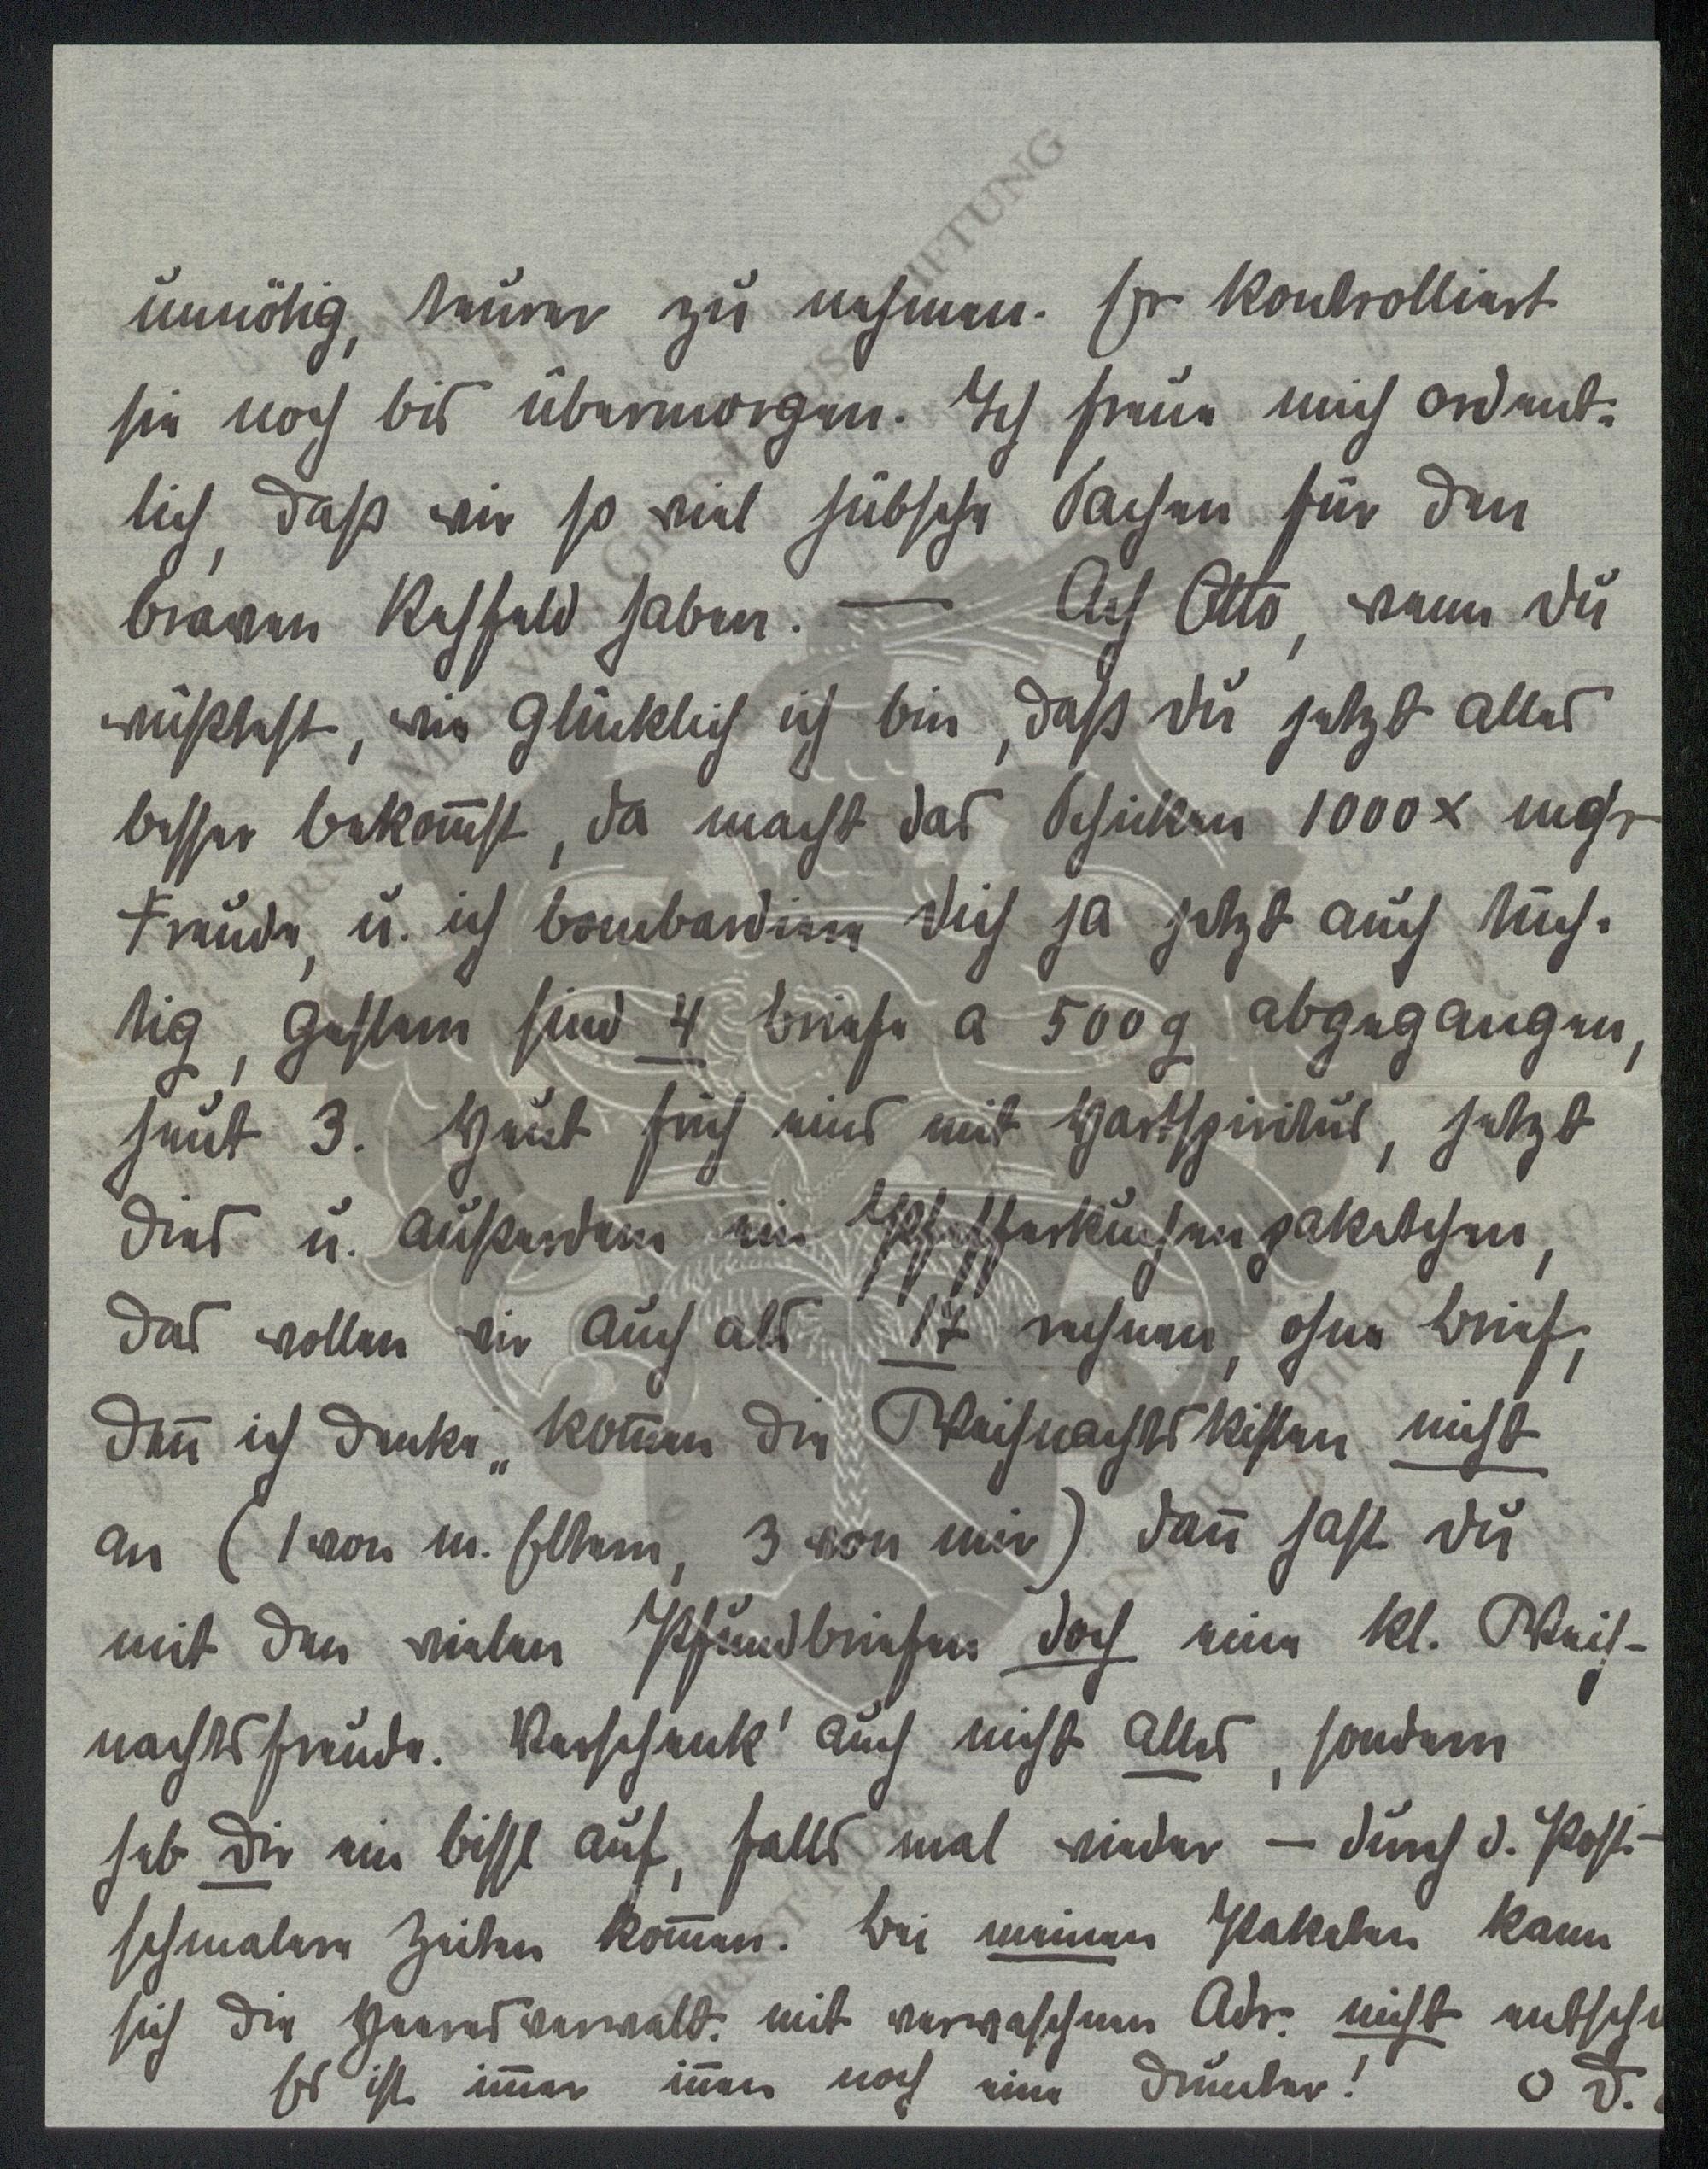 unnötig, teurer zu nehmen. Er kontrolliert
sie noch bis übermorgen. Ich freue mich ordent-
lich, daß wir so viel hübsche Sachen für den
braven Rehfeld haben. — Ach Otto, wenn Du
wüßtest, wie glücklich ich bin, daß Du jetzt alles
besser bekom̄st, da macht das Schicken 1000 x mehr
Freude, u. ich bombardiere Dich ja jetzt auch tüch-
tig, gestern sind 4 Briefe a 500 g abgegangen,
heut 3. Heut früh eins mit Hartspiritus, jetzt
dies u. außerdem ein Pfefferkuchenpaketchen,
das wollen wir auch als 17 rechnen, ohne Brief,
den̄ ich denke „ kom̄en die Weihnachtskisten nicht
an (1 von m. Eltern, 3 von mir) dan̄ hast Du
mit den vielen Pfundbriefen doch eine kl. Weih-
nachtsfreude. Verschenk' auch nicht alles, sondern
heb Dir ein bissl auf, falls mal wieder – durch d. Post –
schmalere Zeiten kom̄en. Bei meinen Paketen kann
sich die Heeresverwalt. mit verwaschnen Adr. nicht entsch
Es ist im̄er in̄en noch eine drunter! O D.